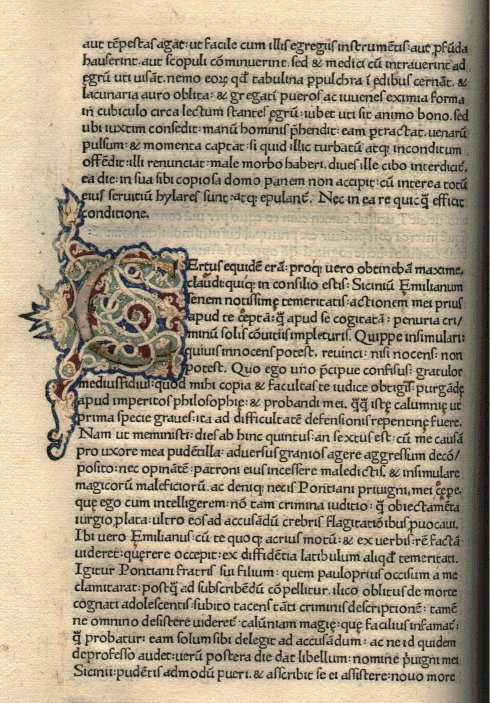 aut tēpestas agāt: ut facile cum illis egregiis instrumētis: aut ꝓfūda
hauserint. aut scopuli cōminuerint. sed & medici cū intrauerint ad
egrū uti uisāt. nemo eoꝝ qđ tabulina ꝑpulchra ī edibus cernāt. &
lacunaria auro oblita: & gregati pueros ac iuuenes eximia forma
in cubiculo circa lectum stantes egrū: iubet uti sit animo bono. sed
ubi iuxtim consedit: manū hominis p̄hendit: eam ꝑtractat. uenarū
pulsum: & momenta captat: si quid illic turbatū atq; inconditum
offēdit. illi renunciat: male morbo haberi. diues ille cibo interdicit̄.
ea die: in sua sibi copiosa domo panem non accipit: cū interea totū
eius seruitiū hylares sunt: atq; epulant̄. Nec in ea re quicq̄ efficit
conditione.
CErtus equidē erā: proq; uero obtinebā maxime.
claudī quiq; in consilio estis: Siciniū Emilianum
senem notissime temeritatis: actionem mei prius
apud te cęptā: q̄ apud se cogitatā: penuria cri/
minū solis cōuitiis impleturis. Quippe insimulari:
quiuis innocens potest. reuinci: nisi nocens: non
potest. Quo ego uno p̄cipue confisus: gratulor
mediusfidius: quod mihi copia & facultas te iudice obtigit: purgādę
apud imperitos philosophię: & probandi mei. q̄q̄ istę calumnię ut
prima specie graues: ita ad difficultatē defensionis repentinę fuere.
Nam ut meministi: dies ab hinc quintus: an sextus est: cū me causā
pro uxore mea pudētilla: aduersus granios agere aggressum decō/
posito: nec opinātē: patroni eius incessere maledictis. & insimulare
magicorū maleficiorū. ac deniq; necis Pontiani priuigni, mei cępe.
que ego cum intelligerem: nō tam crimina iuditio: q̄ obiectamēta
iurgio ꝓlata: ultro eos ad accusādū crebris flagitatiōibus ꝓuocaui.
Ibi uero Emilianus: cū te quoq; acrius motū: & ex uerbis rē factā
uideret: quęrere occepit: ex diffidētia latibulum aliqđ temeritati.
Igitur Pontiani fratris sui filium: quem pauloprius occisum a me
clamitarat: postq̄ ad subscribēdū cōpellitur. ilico oblitus de morte
cognati adolescentis: subito tacens tāti criminis descriptionē: tamē
ne omnino desistere uideret̄: calūniam magię: quę facilius infamat̄:
q̄ probatur: eam solum sibi delegit ad accusādum: ac ne id quidem
deprofesso audet: uerū postera die dat libellum: nomine p̄uigni mei
Sicinii: pudētis admodū pueri. & ascribit se ei assistere: nouo more